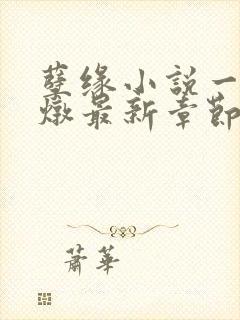 孽缘小說一
燉最新章節
蕭華